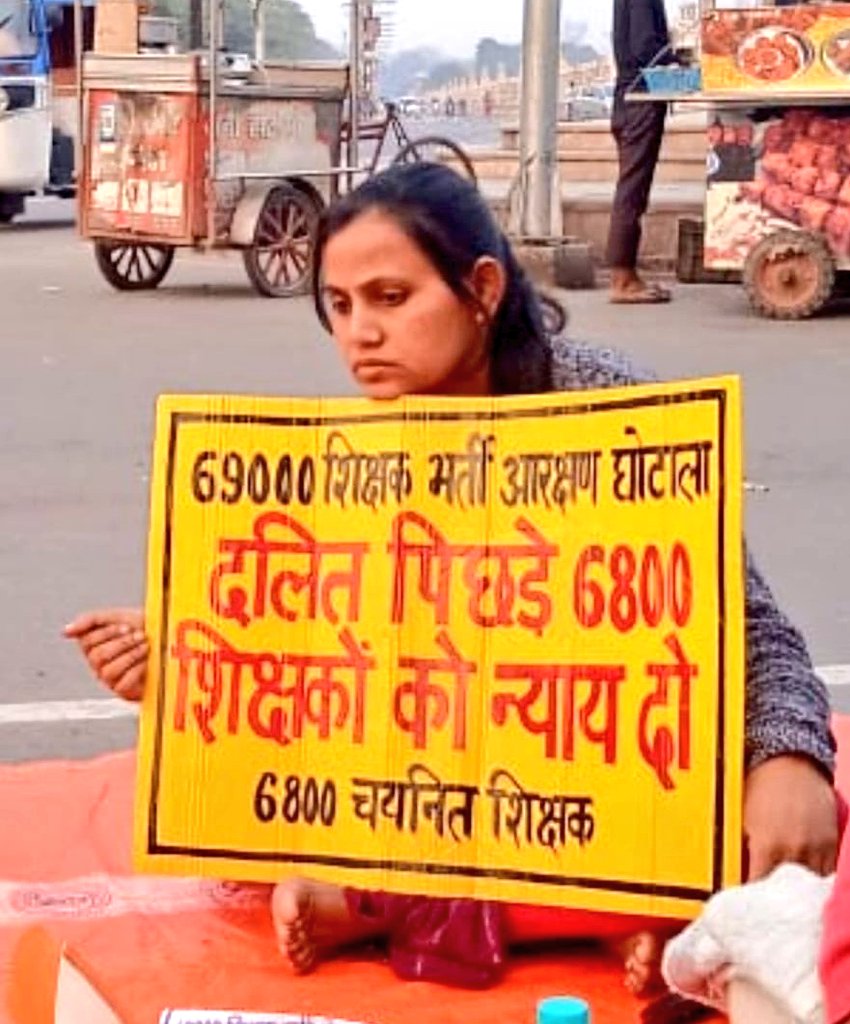 69000 शिक्षक भर्ती आरक्षण घोटाला
दलित पिछड़े 6800
शिक्षकों को न्याय दो
6800 चयनित शिक्षक